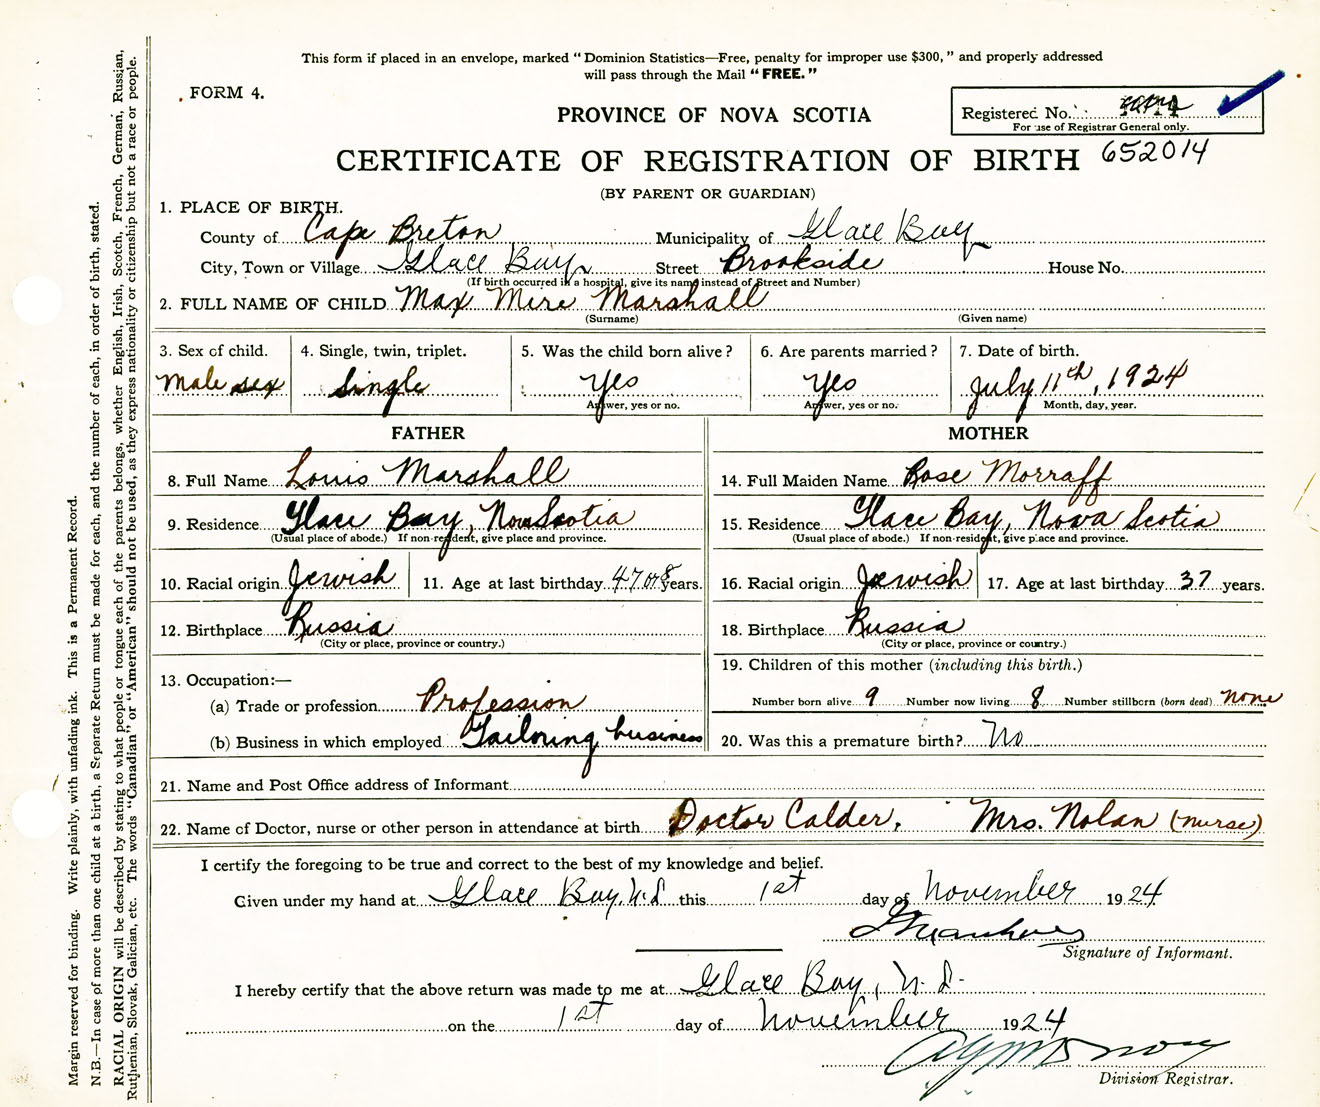 This form if placed in an envelope, marked "Dominion Statistics—Free, penalty for improper use $300," and properly addressed
will pass through the Mail "FREE."
FORM 4.
PROVINCE OF NOVA SCOTIA
Registered No.
For use of Registrar General only.
CERTIFICATE OF REGISTRATION OF BIRTH 652014
(BY PARENT OR GUARDIAN)
1. PLACE OF BIRTH.
County of Cape Breton Municipality of Glace Bay
City, Town or Village Glace Bay Street Brookside House No.
(If birth occurred in a hospital, give its name instead of Street and Number)
2. FULL NAME OF CHILD Max Mire Marshall
(Surname) (Given name)
3. Sex of child. 4. Single, twin, triplet. 5. Was the child born alive? 6. Are parents married? 7. Date of birth.
Male sex Single Yes Yes July 11th, 1924
Answer, yes or no. Answer, yes or no. Month, day, year.
FATHER MOTHER
8. Full Name Louis Marshall 14. Full Maiden Name Rose Morraff
9. Residence Glace Bay, Nova Scotia 15. Residence Glace Bay, Nova Scotia
(Usual place of abode.) If non-resident, give place and province. (Usual place of abode.) If non-resident, give place and province.
10. Racial origin Jewish 11. Age at last birthday 47 or 8 years. 16. Racial origin Jewish 17. Age at last birthday 37 years.
12. Birthplace Russia 18. Birthplace Russia
(City or place, province or country.) (City or place, province or country.)
13. Occupation:— 19. Children of this mother (including this birth.)
(a) Trade or profession Profession Number born alive 9 Number now living 8 Number stillborn (born dead) none
(b) Business in which employed Tailoring business 20. Was this a premature birth? No
21. Name and Post Office address of Informant
22. Name of Doctor, nurse or other person in attendance at birth Doctor Calder, Mrs. Nolan (nurse)
I certify the foregoing to be true and correct to the best of my knowledge and belief.
Given under my hand at Glace Bay, N.S. this 1st day of November 1924
Signature of Informant.
I hereby certify that the above return was made to me at Glace Bay, N.S.
on the 1st day of November 1924
Division Registrar.
Margin reserved for binding. Write plainly, with unfading ink. This is a Permanent Record.
N.B.—In case of more than one child at a birth, a Separate Return must be made for each, and the number of each, in order of birth, stated.
RACIAL ORIGIN will be described by stating to what people or tongue each of the parents belongs, whether English, Irish, Scotch, French, German, Russian,
Ruthenian, Slovak, Galician, etc. The words "Canadian" or "American" should not be used, as they express nationality or citizenship but not a race or people.